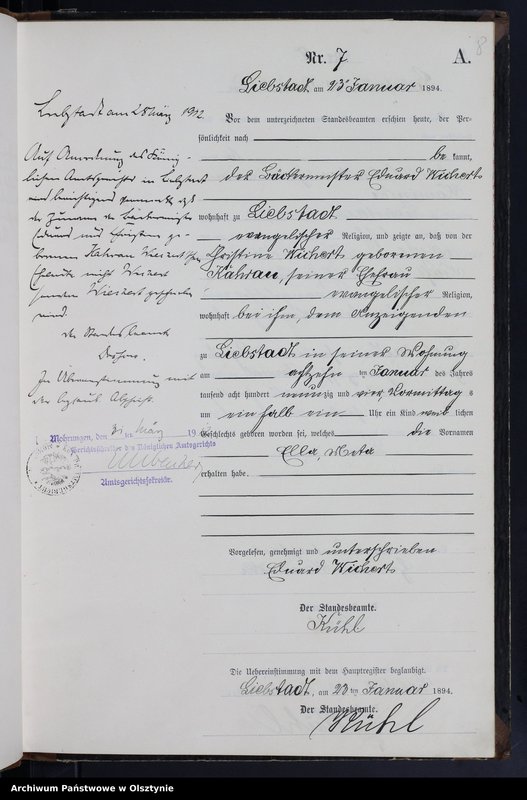 8
Nr. 7 A.
Liebstadt am 23ten Januar 1894.
Vor dem unterzeichneten Standesbeamten erschien heute, der Per-
sönlichkeit nach
be kannt,
der Bäckermeister Eduard Wichert
wohnhaft zu Liebstadt
evangelischer Religion, und zeigte an, daß von der
Christine Wichert geborenen
Kahrau, seiner Ehefrau
evangelischer Religion,
wohnhaft bei ihm, dem Anzeigenden
zu Liebstadt in seiner Wohnung
am achtzehn ten Januar des Jahres
tausend acht hundert neunzig und vier Vormittag s
um ein halb ein Uhr ein Kind weib lichen
Geschlechts geboren worden sei, welches die Vornamen
Ella, Meta
erhalten habe.
Vorgelesen, genehmigt und unterschrieben
Eduard Wichert
Der Standesbeamte.
Kühl
Die Uebereinstimmung mit dem Hauptregister beglaubigt.
Liebstadt, am 23ten Januar 1894.
Der Standesbeamte.
Kühl
Liebstadt am 28 März 1912.
Auf Anordnung des König-
lichen Amtsgerichts in Liebstadt
wird berichtigend vermerkt, daß
der Zuname der Bäckermeister
Eduard und Christine ge-
borenen Kahrau Wichert'schen
Eheleute nicht Wichert
sondern Wiechert geschrieben
wird.
Der Standesbeamte
In Übereinstimmung mit
Mohrungen, den 31 ten März 19
Gerichtsschreiber des Königlichen Amtsgerichts
Amtsgerichtssekretär.
Archiwum Państwowe w Olsztynie